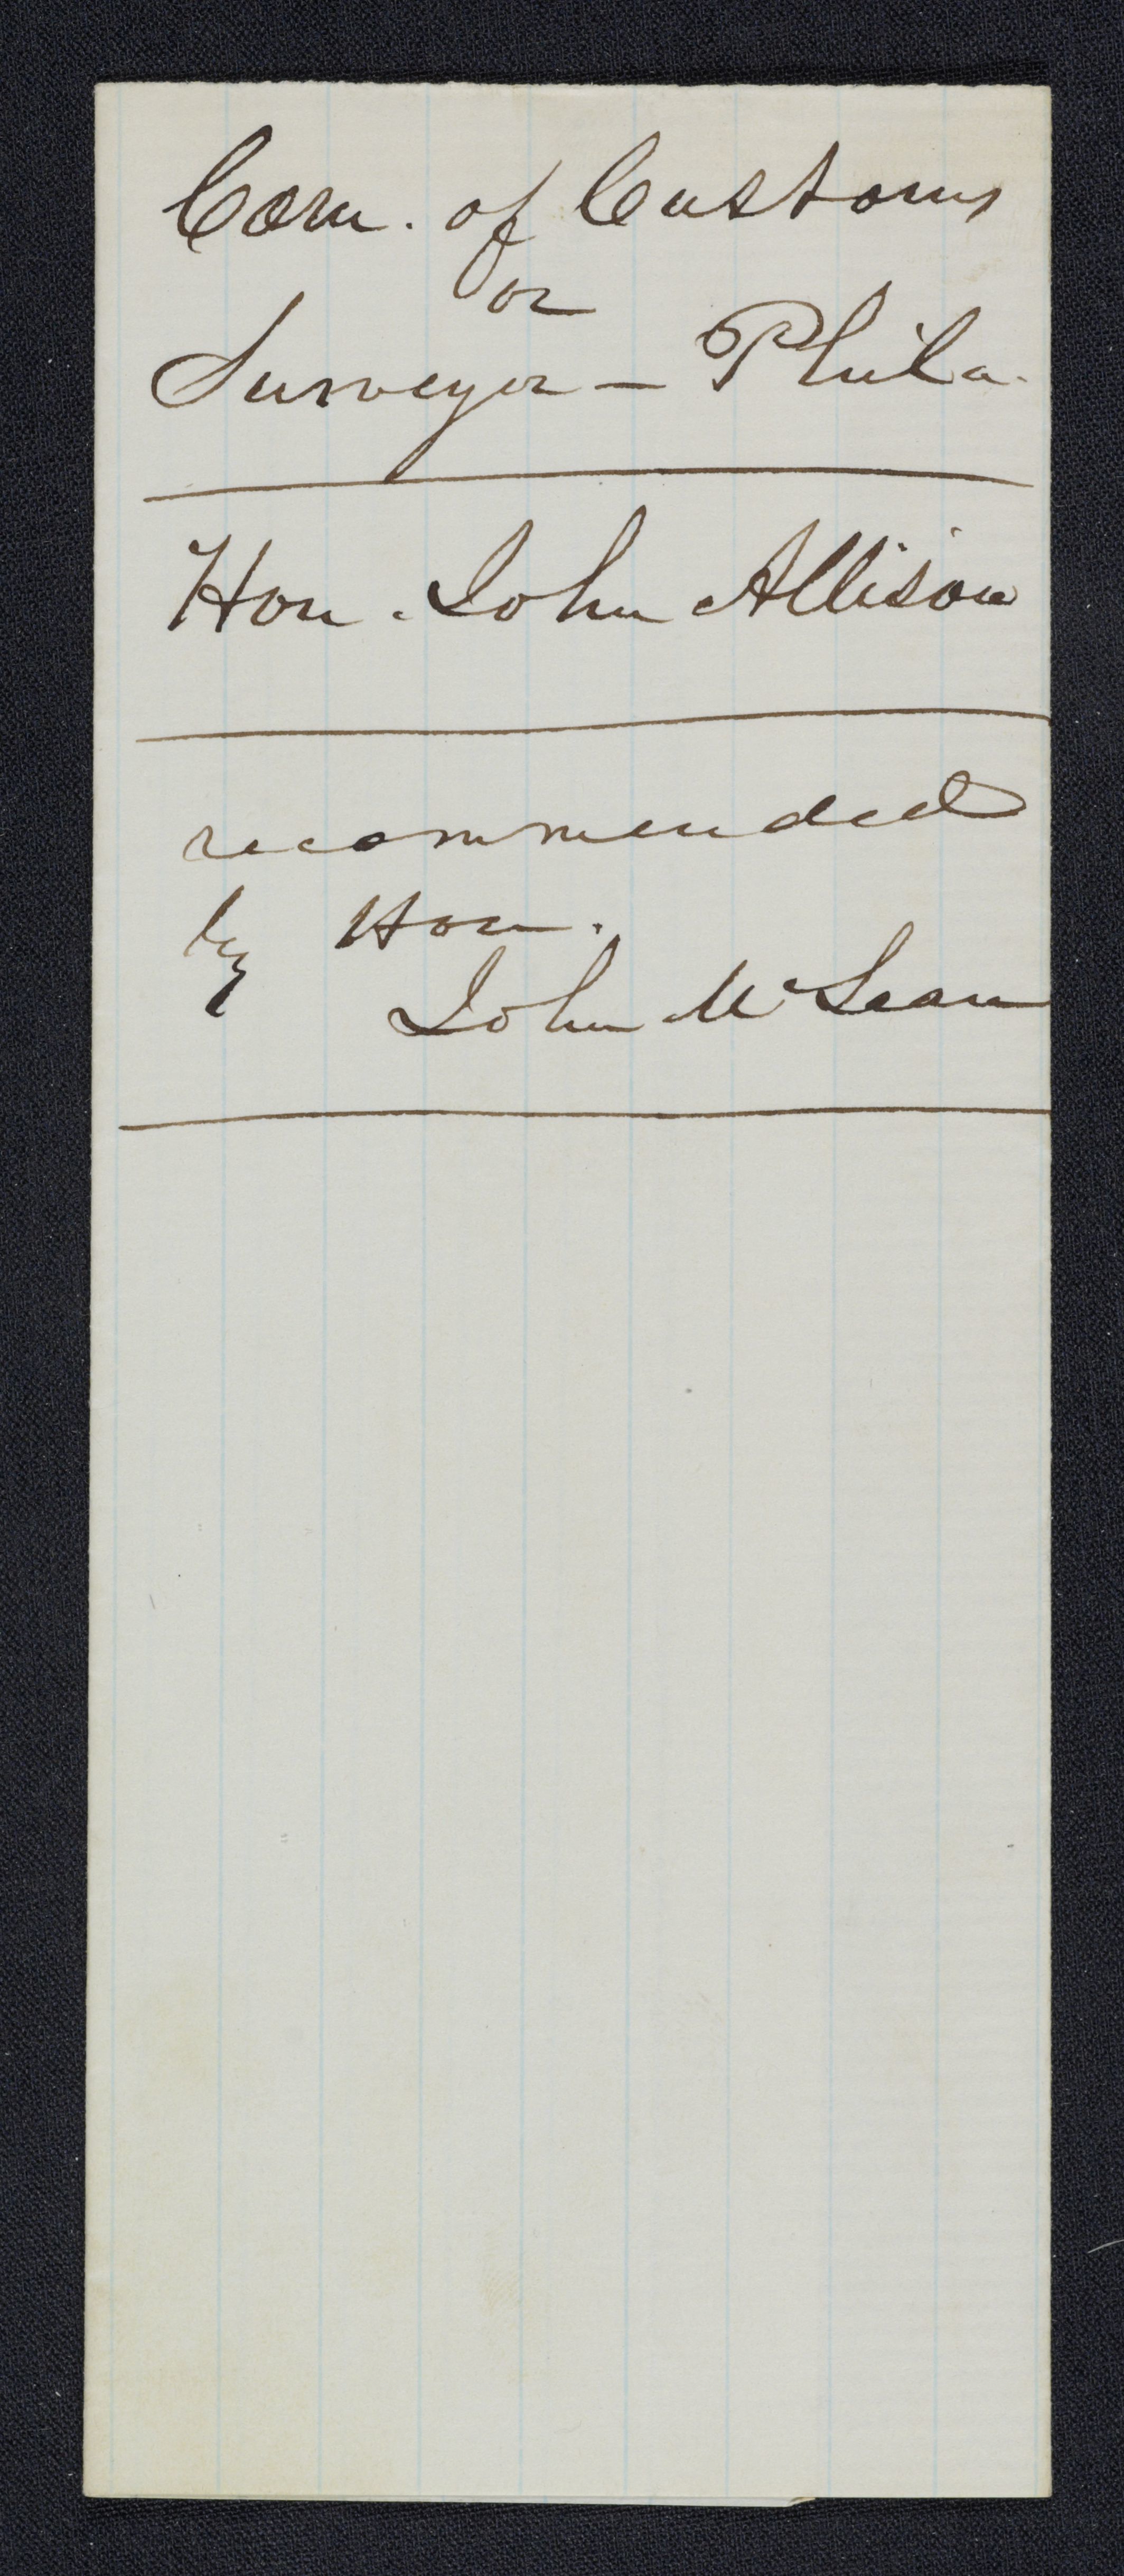 Com. of Customs
or
Surveyor - Phila.
Hon. John Allison
recommended
by Hon.
John McLean